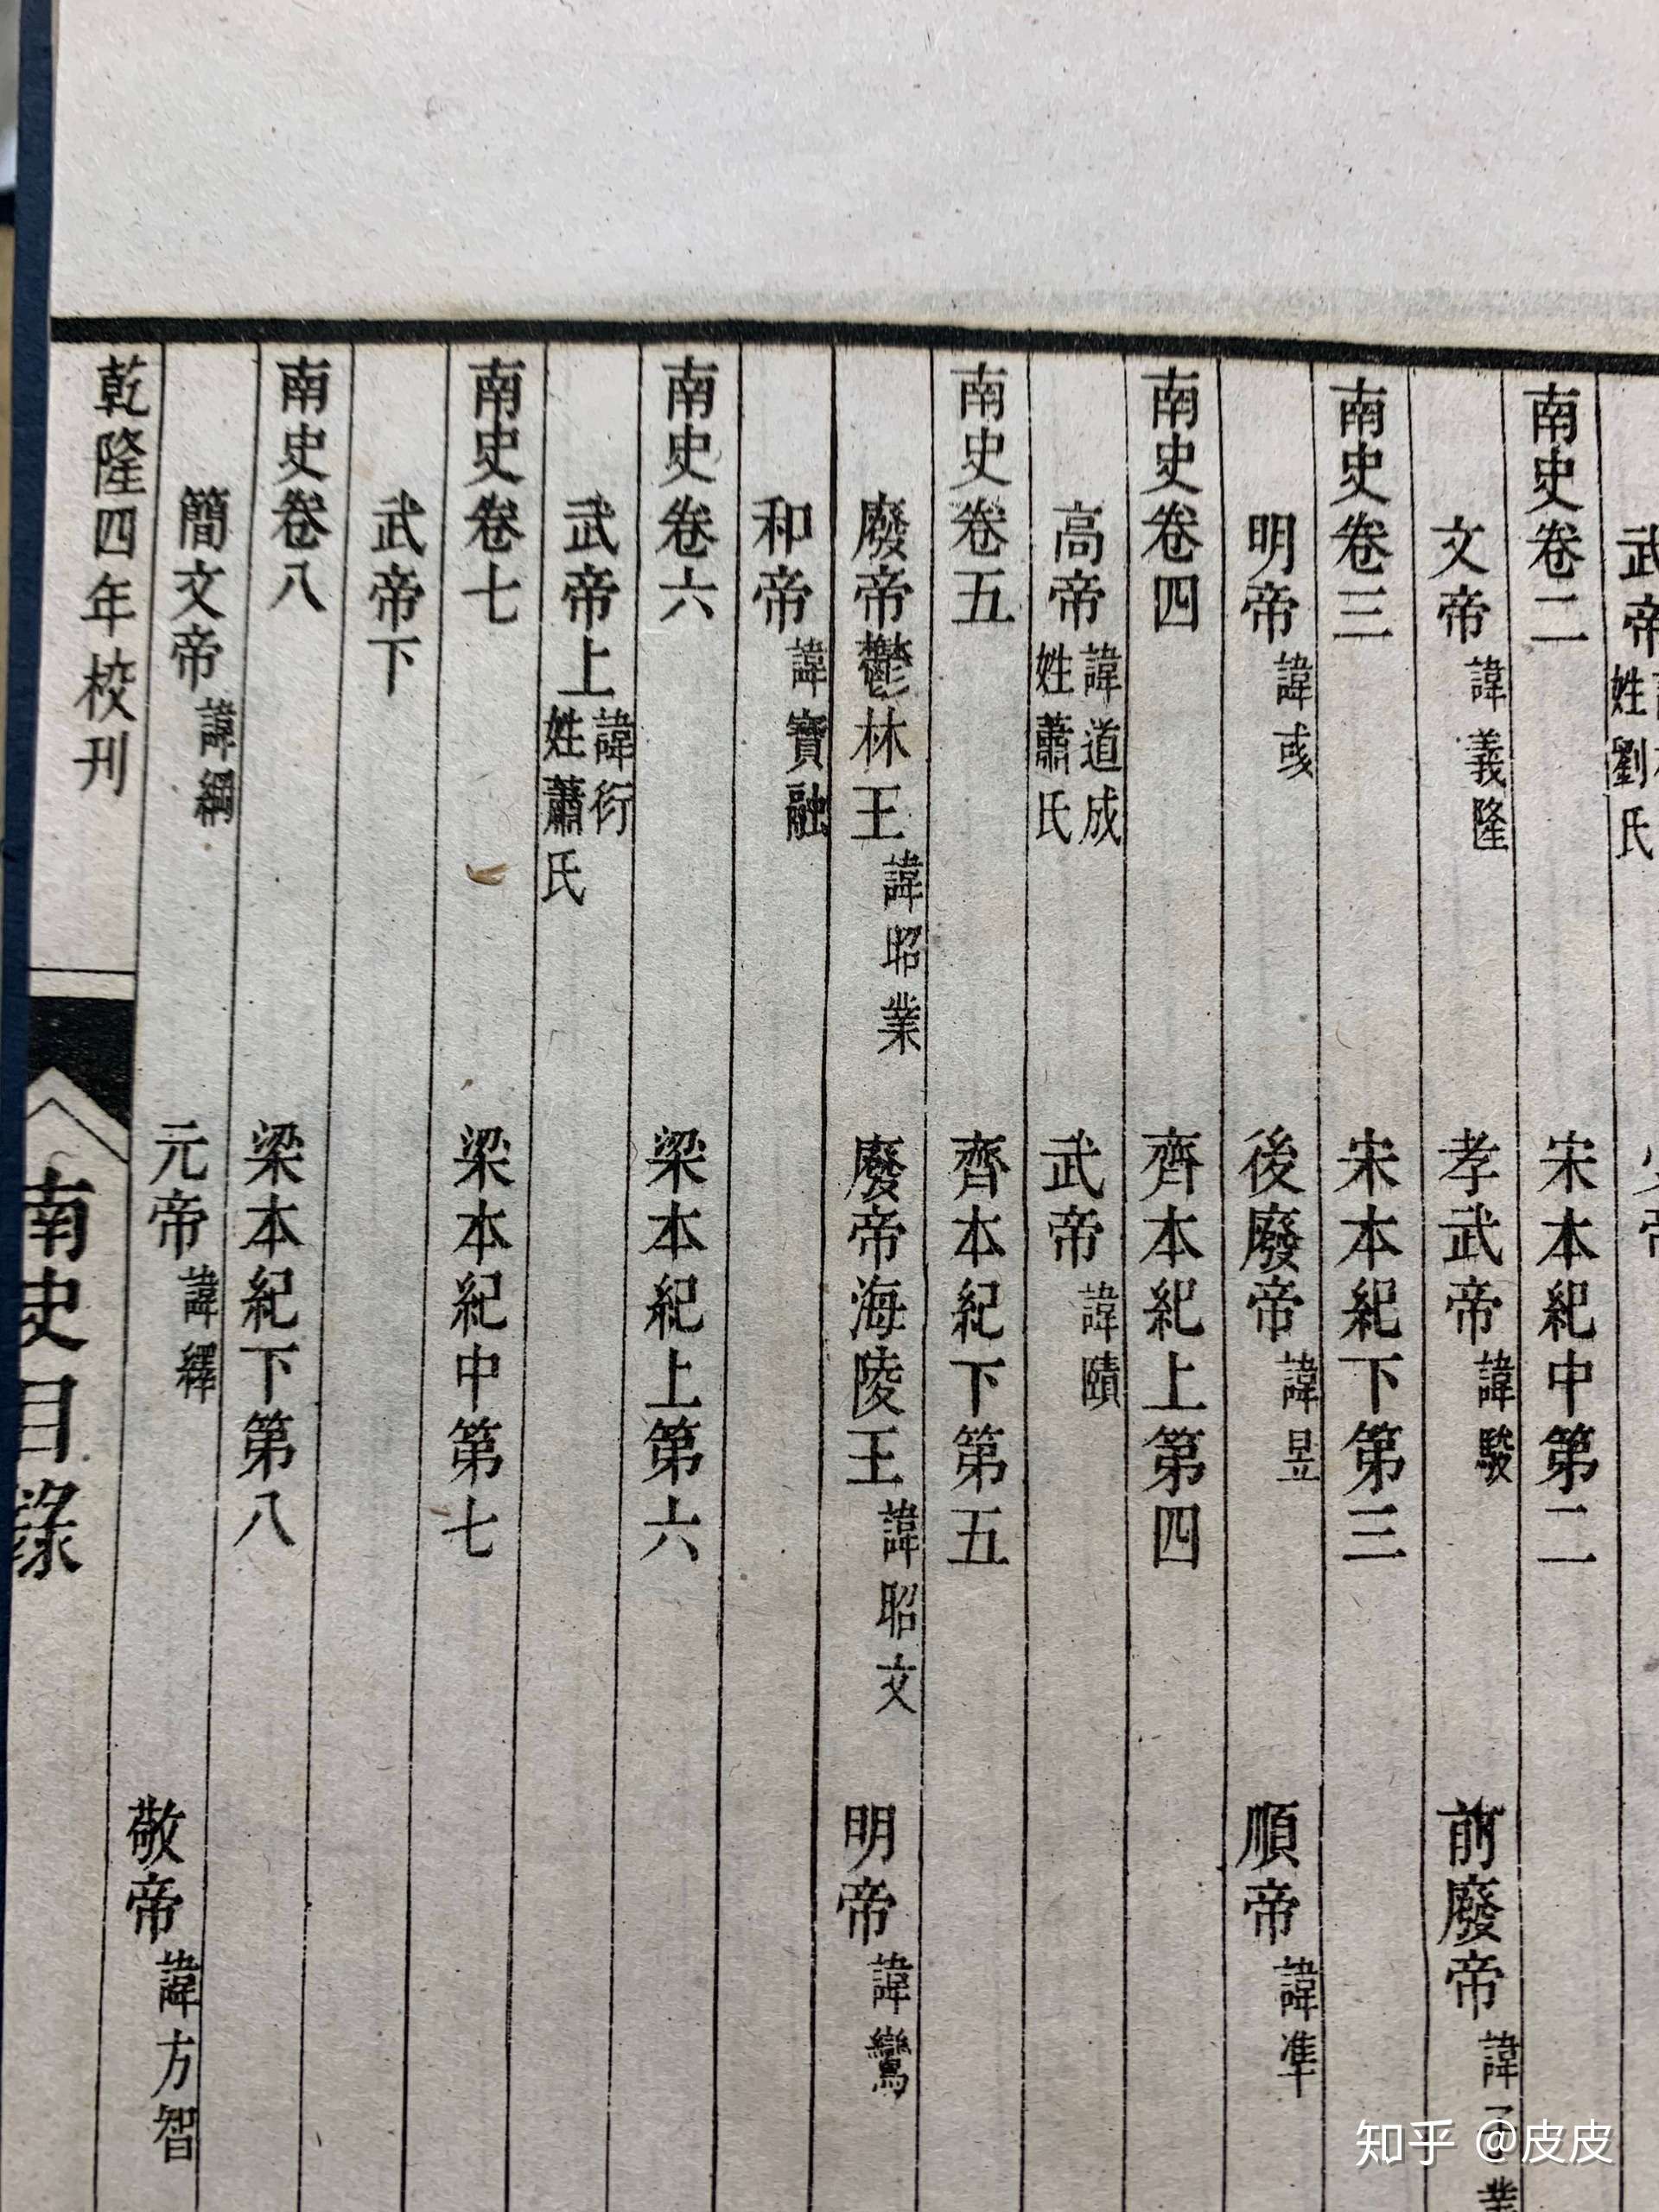 武帝 姓劉氏
南史卷二 宋本紀中第二
文帝 諱義隆 孝武帝 諱駿 前廢帝 諱子業
南史卷三 宋本紀下第三
明帝 諱彧 後廢帝 諱昱 順帝 諱準
南史卷四 齊本紀上第四
高帝 諱道成 姓蕭氏 武帝 諱賾
南史卷五 齊本紀下第五
廢帝鬱林王 諱昭業 廢帝海陵王 諱昭文 明帝 諱鸞
和帝 諱寶融
南史卷六 梁本紀上第六
武帝上 諱衍 姓蕭氏
南史卷七 梁本紀中第七
武帝下
南史卷八 梁本紀下第八
簡文帝 諱綱 元帝 諱繹 敬帝 諱方智
乾隆四年校刊 南史目錄
知乎 @皮皮